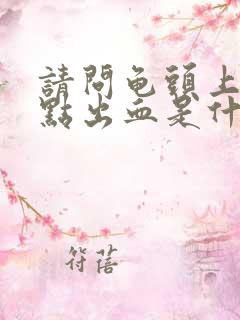 請問龟頭上
點出血是什
符蓓